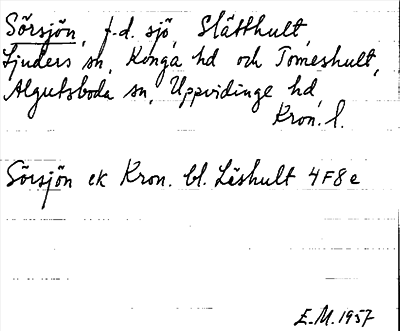 Sörsjön, f.d. sjö, Slätthult,
Ljuders sn, Konga hd och Tomeshult,
Algutsboda sn, Uppvidinge hd,
Kron. l.
Sörsjön ek Kron. bl. Leshult 4F8e
E.M. 1957